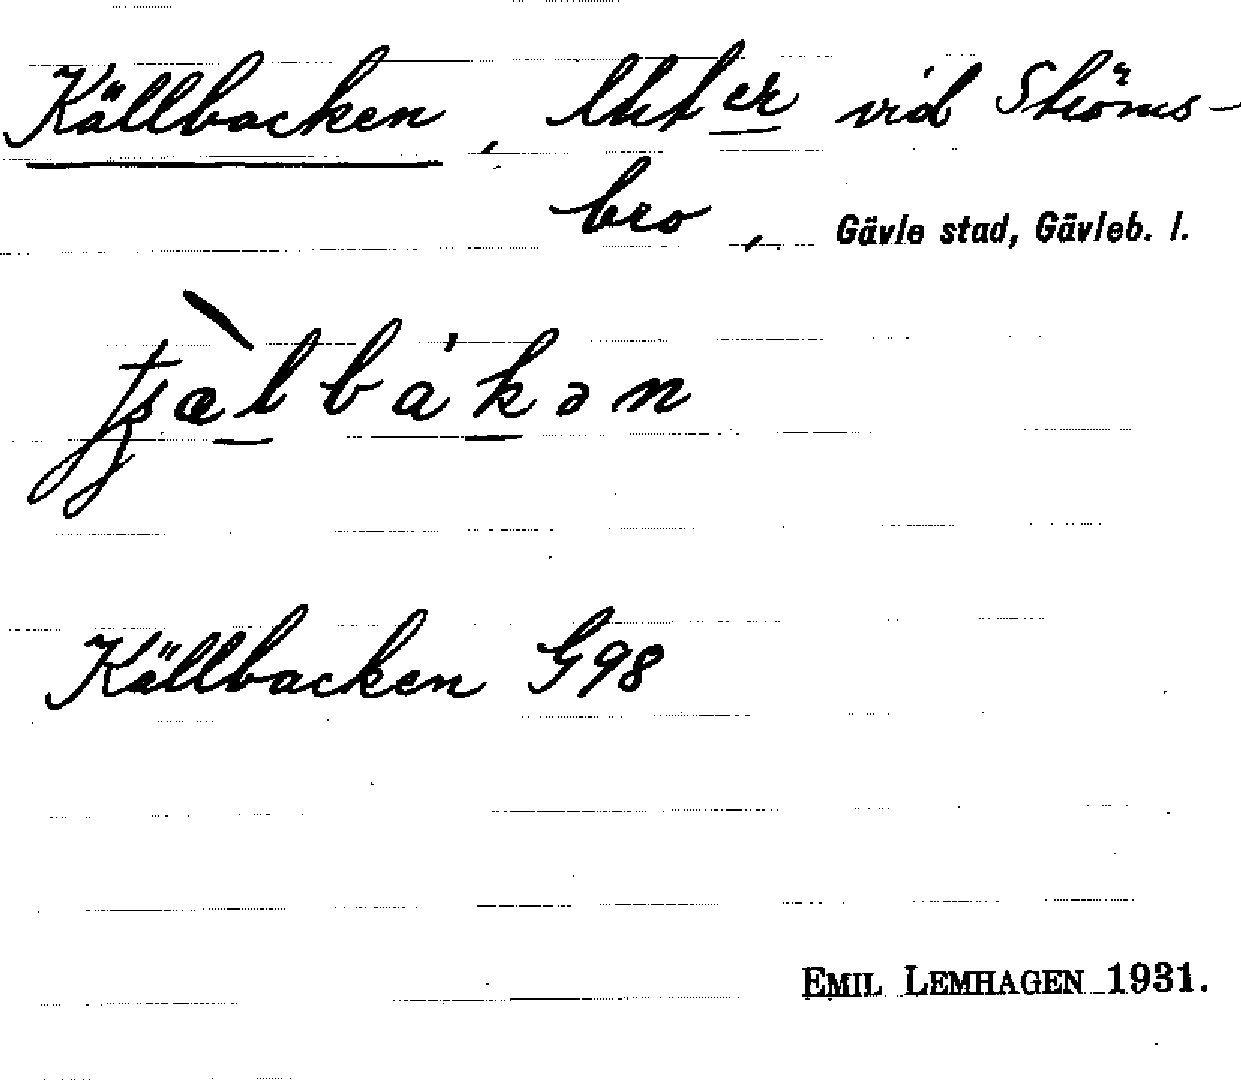 Källbacken, lht er vid Ströms-
bro, Gävle stad, Gävleb. l.
Källbacken G98
EMIL LEMHAGEN 1931.